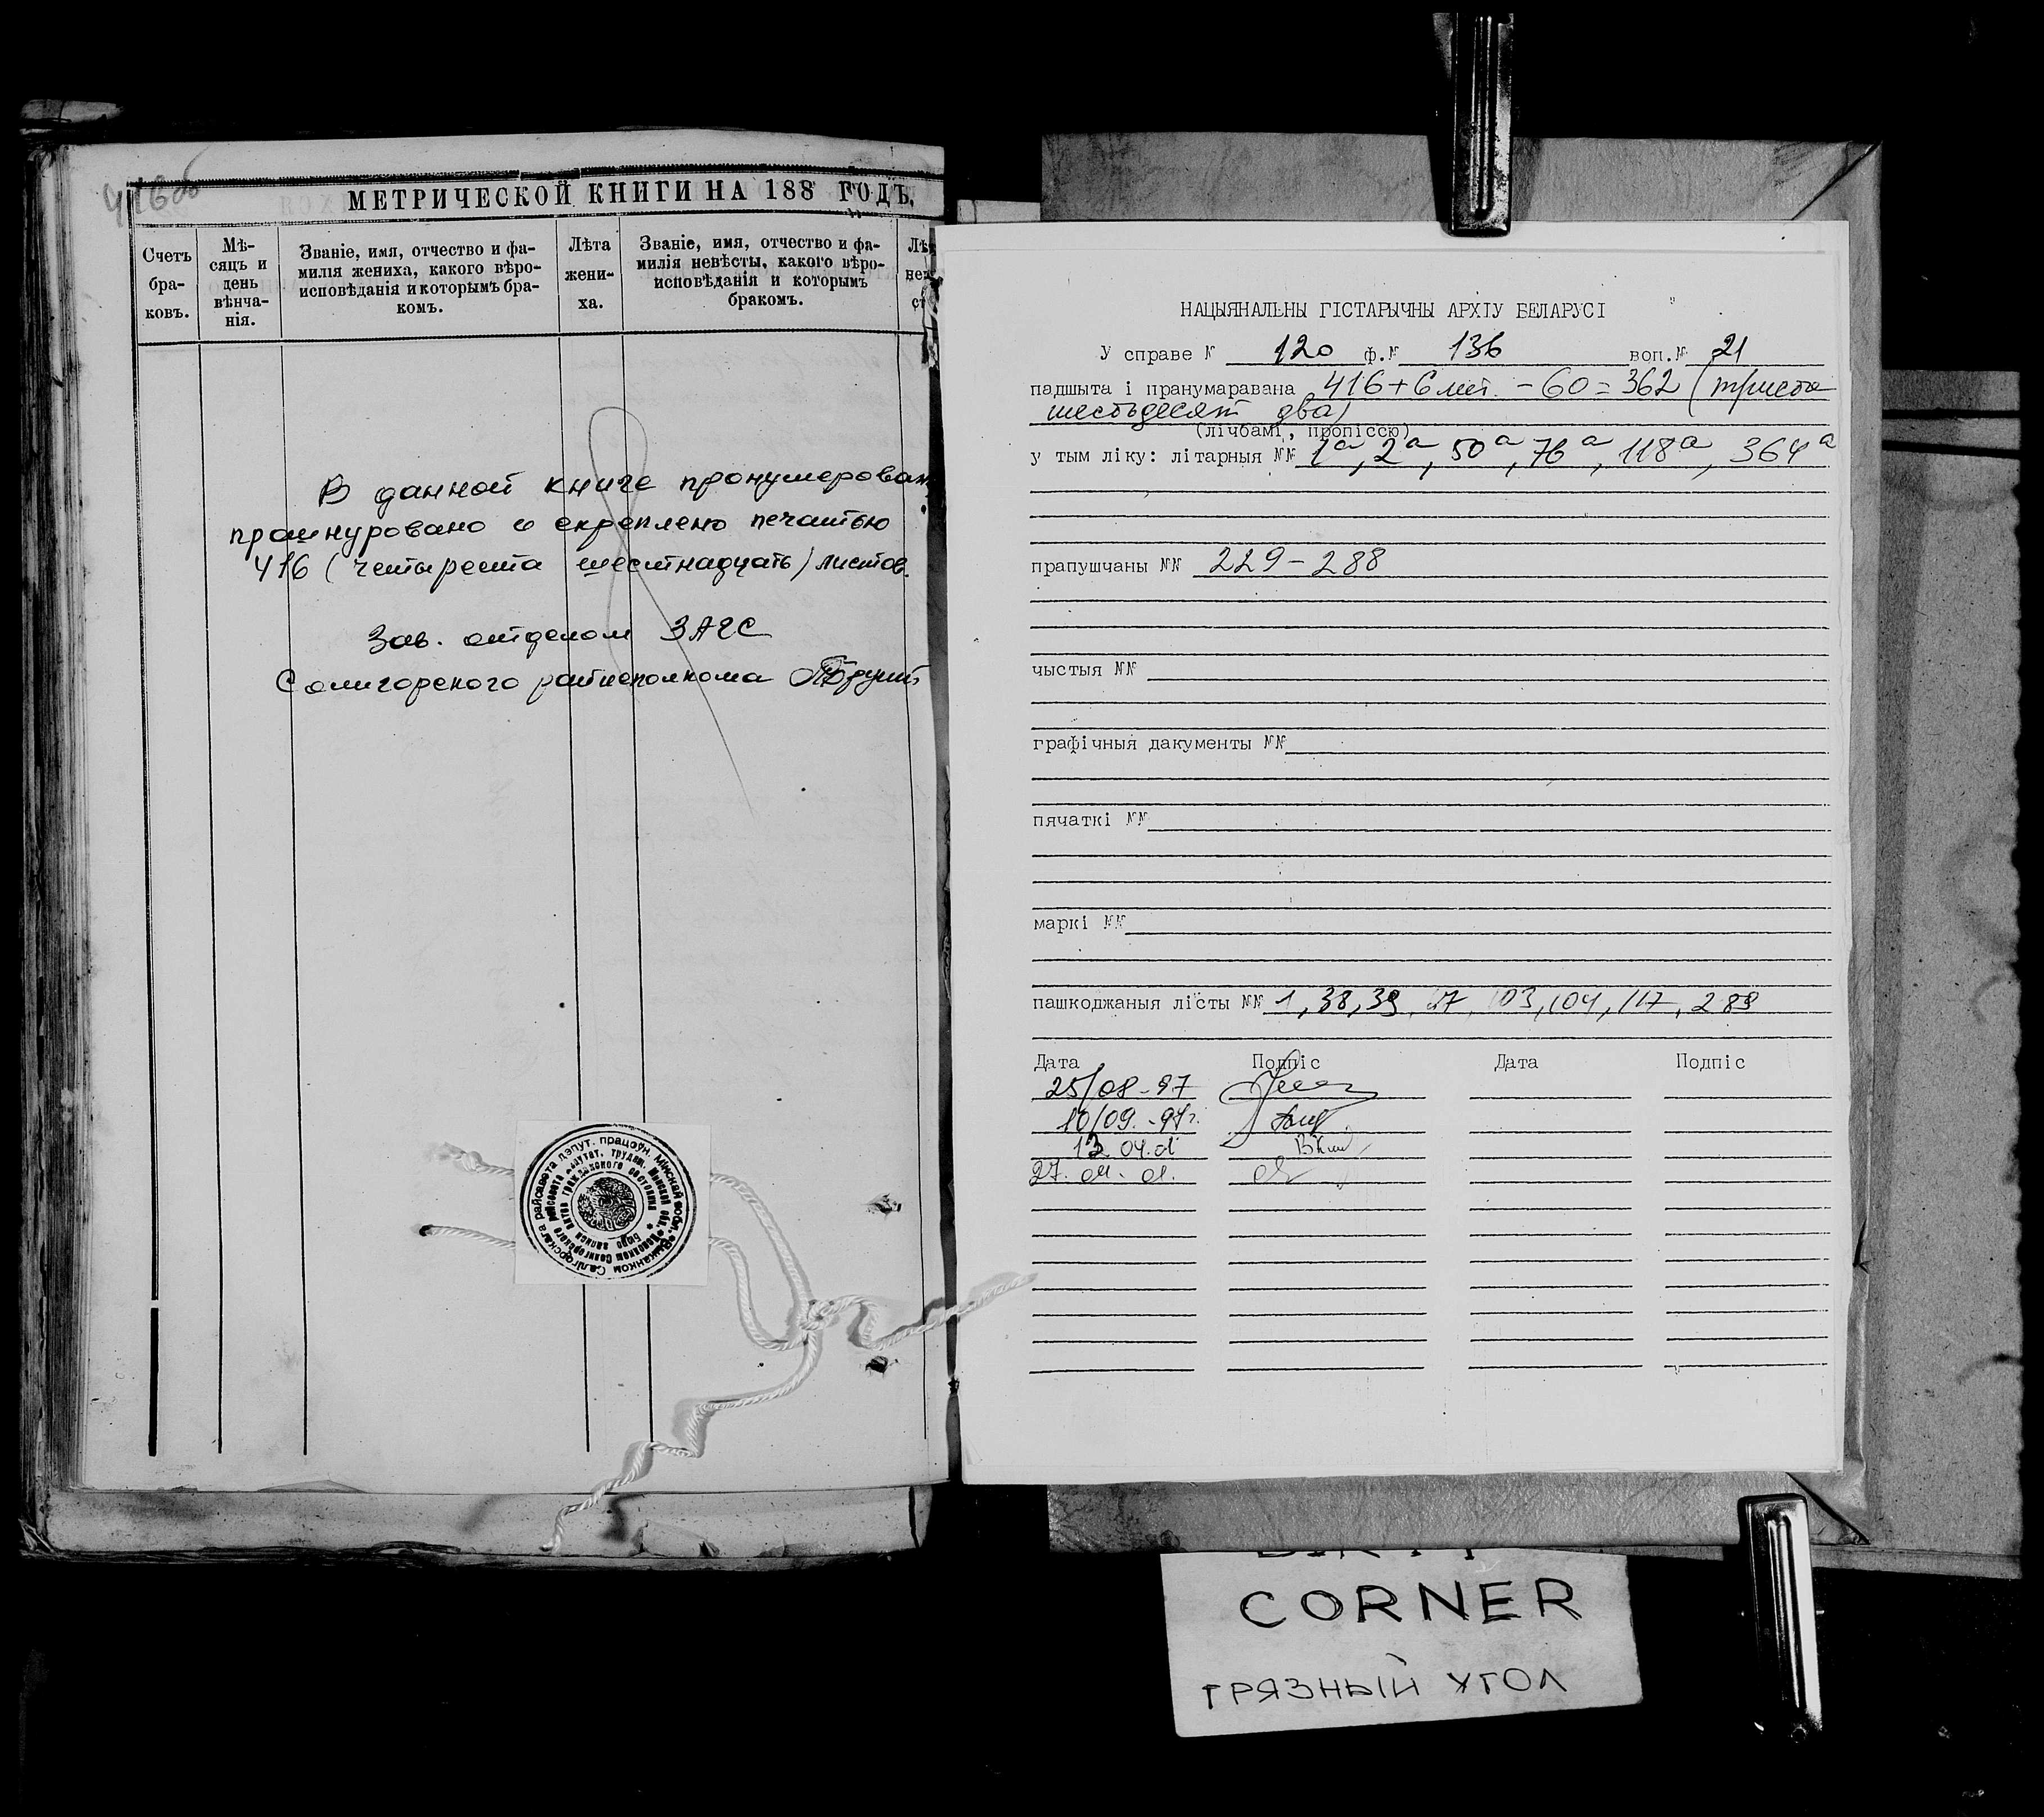 416об
МЕТРИЧЕСКОЙ КНИГИ НА 188 ГОДЪ.
Счетъ браковъ.
Мѣ-
сяцъ и
день
вѣнча-
нія.
Званіе, имя, отчество и фа-
милія жениха, какого вѣро-
исповѣданія и которымъ бра-
комъ.
Лѣта
жени-
ха.
Званіе, имя, отчество и фа-
милія невѣсты, какого вѣро-
исповѣданія и которымъ
бракомъ.
В данной книге пронумерован
прошнуровано и скреплено печатью
416 (четыреста шестнадцать) листов.
Зав. отделом ЗАГС
Солигорского райисполкома
НАЦЫЯНАЛЬНЫ ГІСТАРЫЧНЫ АРХІУ БЕЛАРУСІ
У справе № 120 ф.№ 136 воп.№ 21
падшыта і пранумаравана 416+6 лит. -60=362 (триста
шестьдесят два)
(лічбамі, пропіссю)
у тым ліку: літарныя №№ 1а, 2а, 50а, 76а, 118а, 364а
прапушчаны №№ 229-288
чыстыя №№
графічныя дакументы №№
пячаткі №№
маркі №№
пашкоджаныя лісты №№ 1, 38, 39, 103, 104, 117, 289
Дата Подпіс Дата Подпіс
25/08-97
10/09.-97г.
13.04.01
27.04.01.
CORNER
ГРЯЗНЫЙ УГОЛ